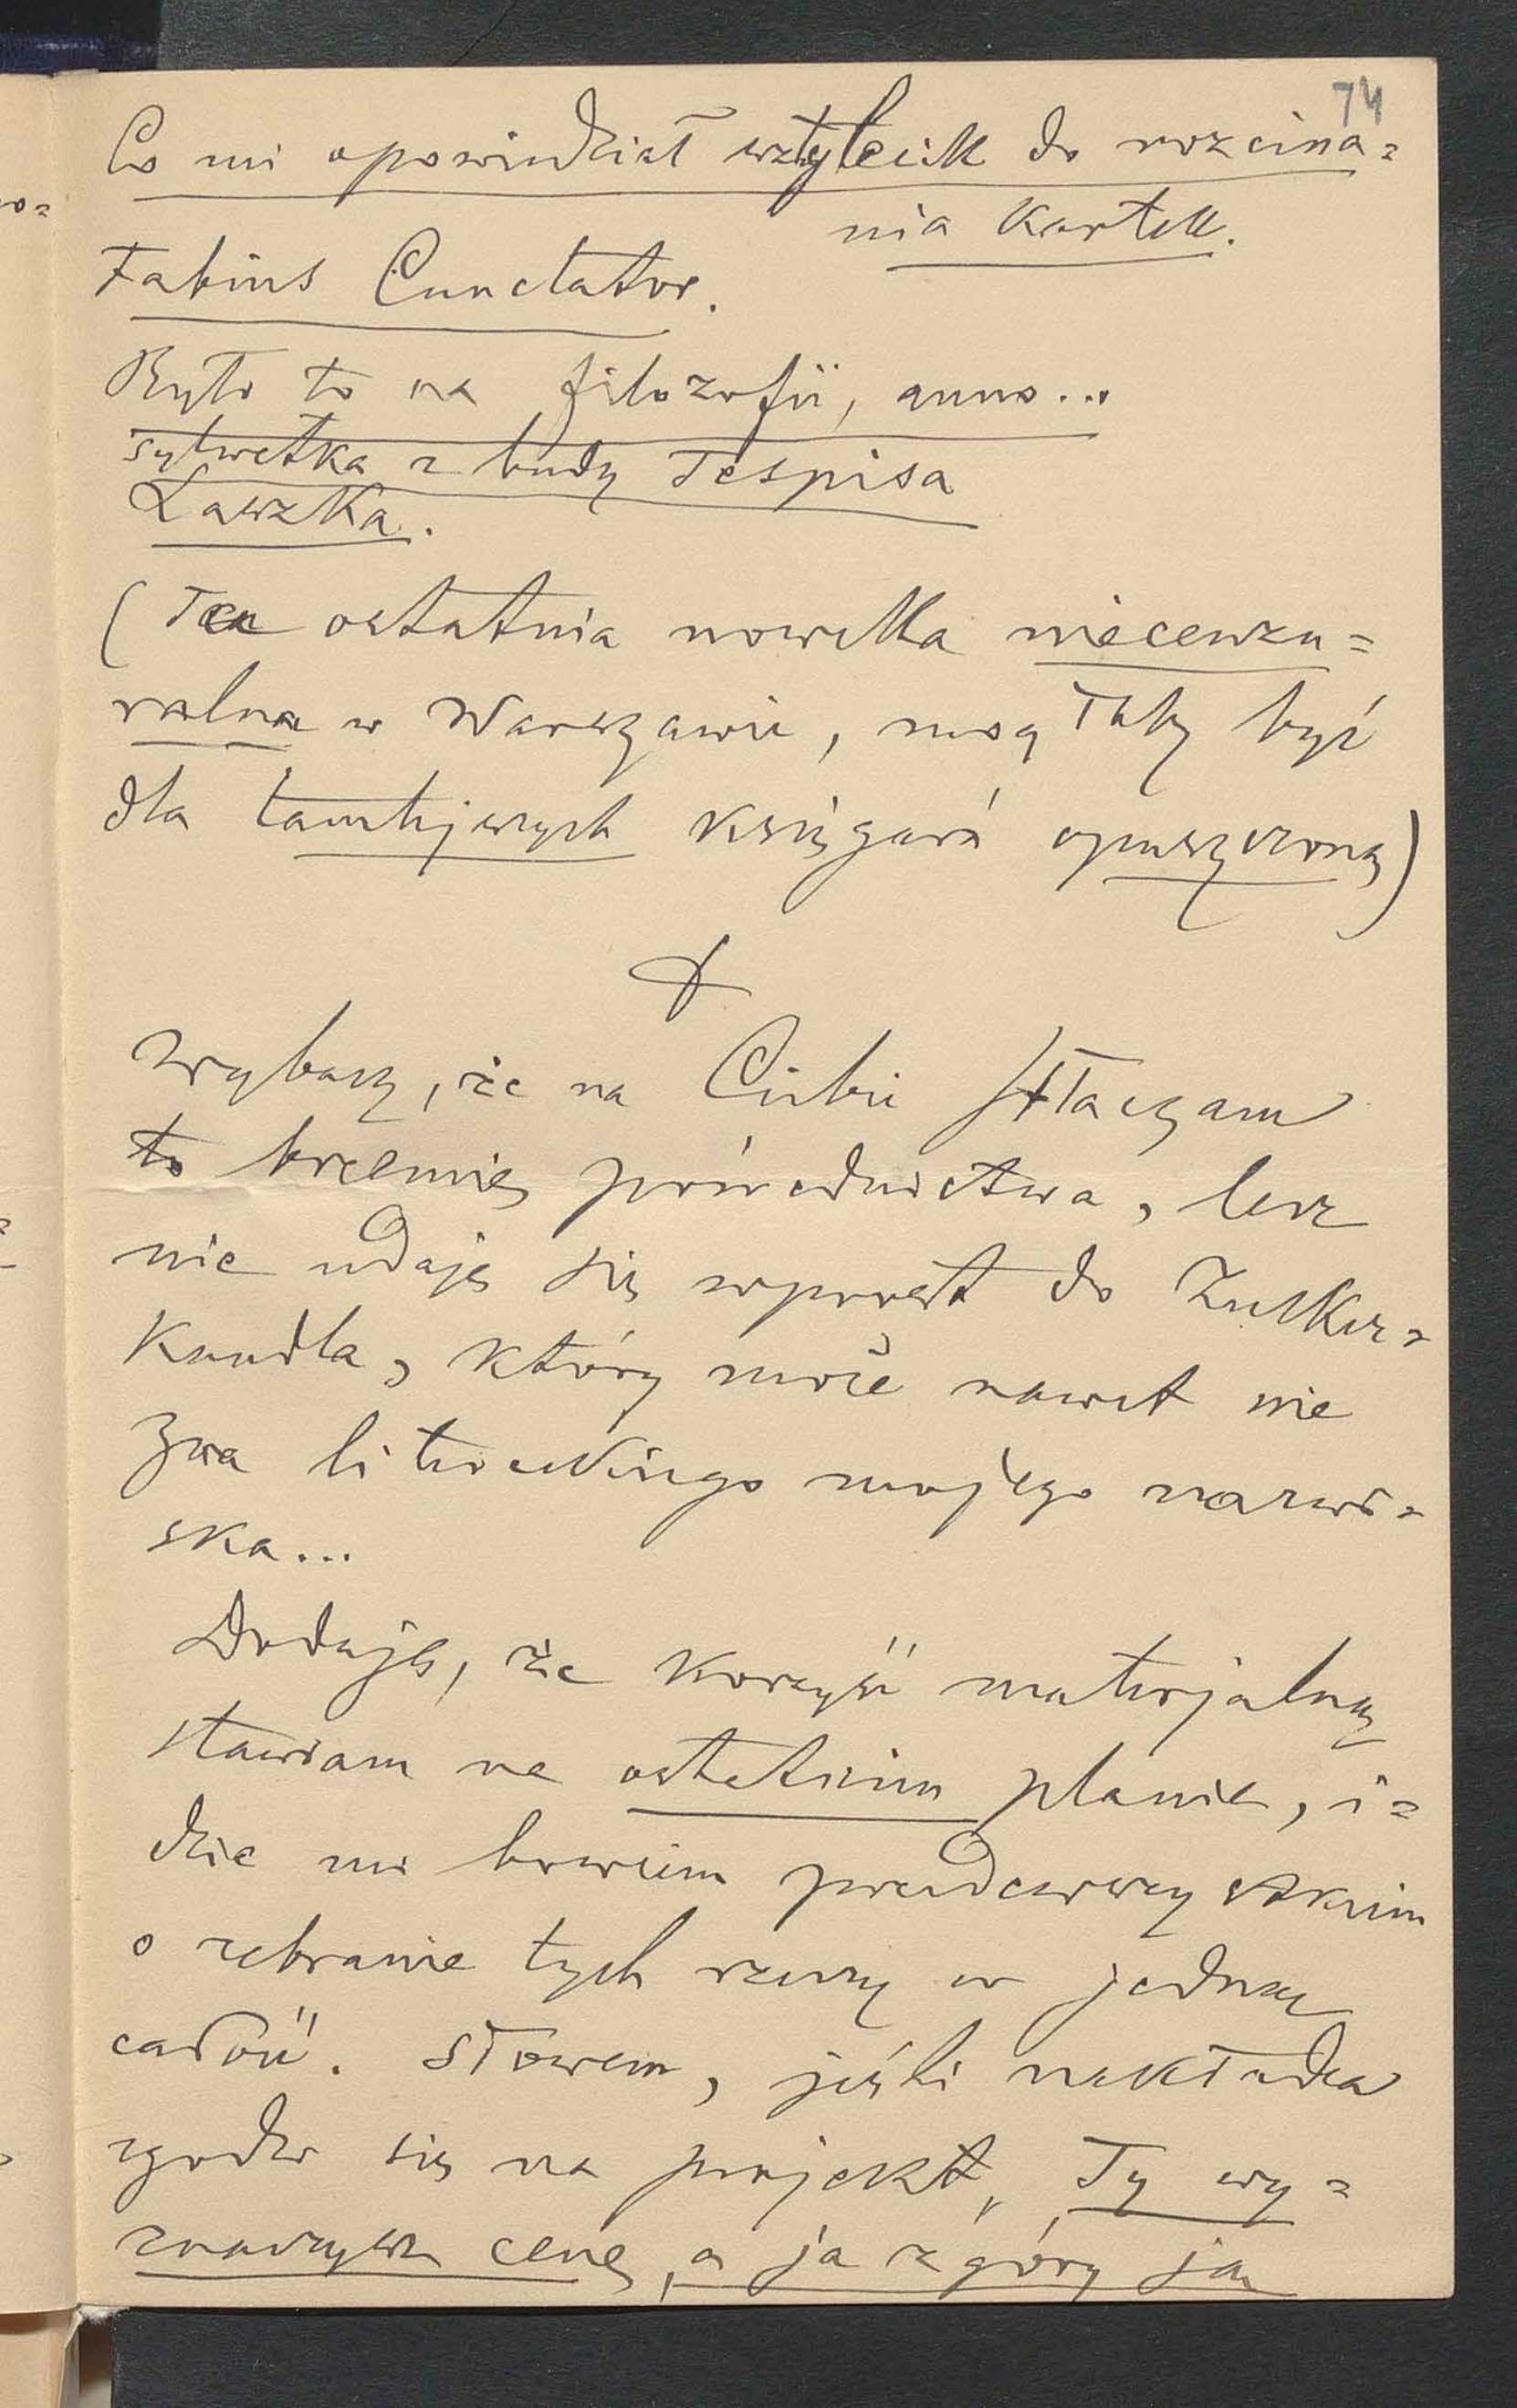 74
Co mi opowiedział sztylecik do rozcina=
nia kartek.
Fabius Cunctator.
Było to na filozofii, anno...
Sylwetka z budy Tespisa
Laszka.
(Ta ostatnia nowelka niecenzu=
ralna w Warszawie, mogłaby być
dla tamtejszych księgarń opuszczoną)
Wybacz, że na Ciebie stłaczam
to brzemię pośrednictwa, lecz
nie udaję się wprost do Zucker=
kandla, który może nawet nie
zna literackiego mojego nazwi=
ska...
Dodaję, że korzyść materjalną
stawiam na ostatnim planie, i=
dzie mi bowiem przedewszystkiem
o zebranie tych rzeczy w jedną
całość. Słowem, jeśli nakładca
zgodzi się na projekt, Ty wy=
znaczysz cenę, a ja z góry ją